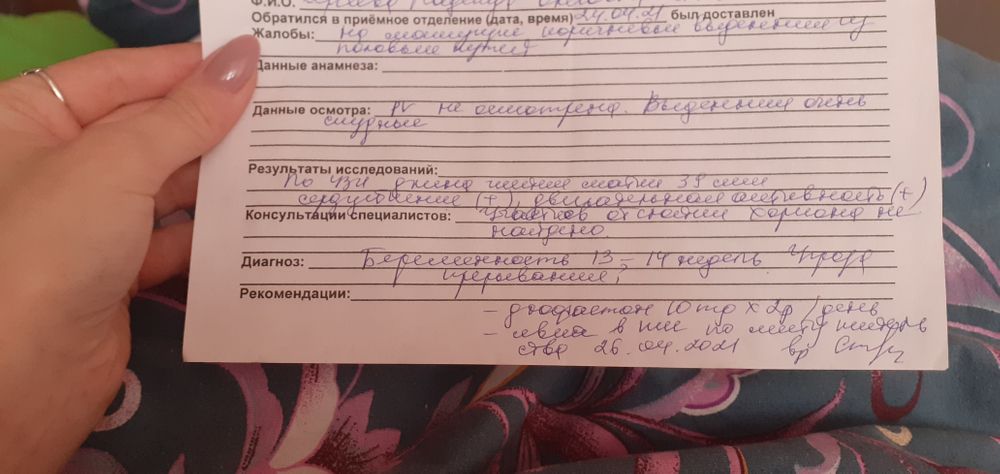 Ф.И.О.
Обратился в приёмное отделение (дата, время) 24.04.21 был доставлен
Жалобы: на мажущие коричневые выделения из
половых путей
Данные анамнеза:
Данные осмотра: PV не осмотрена. Выделения очень
скудные
Результаты исследований:
По УЗИ длина шейки матки 39 мм
сердцебиение (+), двигательная активность (+)
Консультации специалистов: Участков отслойки хориона не
найдено.
Диагноз: Беременность 13-14 недель. Угроза
прерывания,
Рекомендации:
- дюфастон 10 мг х 2р/день
- явка в по месту житель
ства 26.04.2021 вр